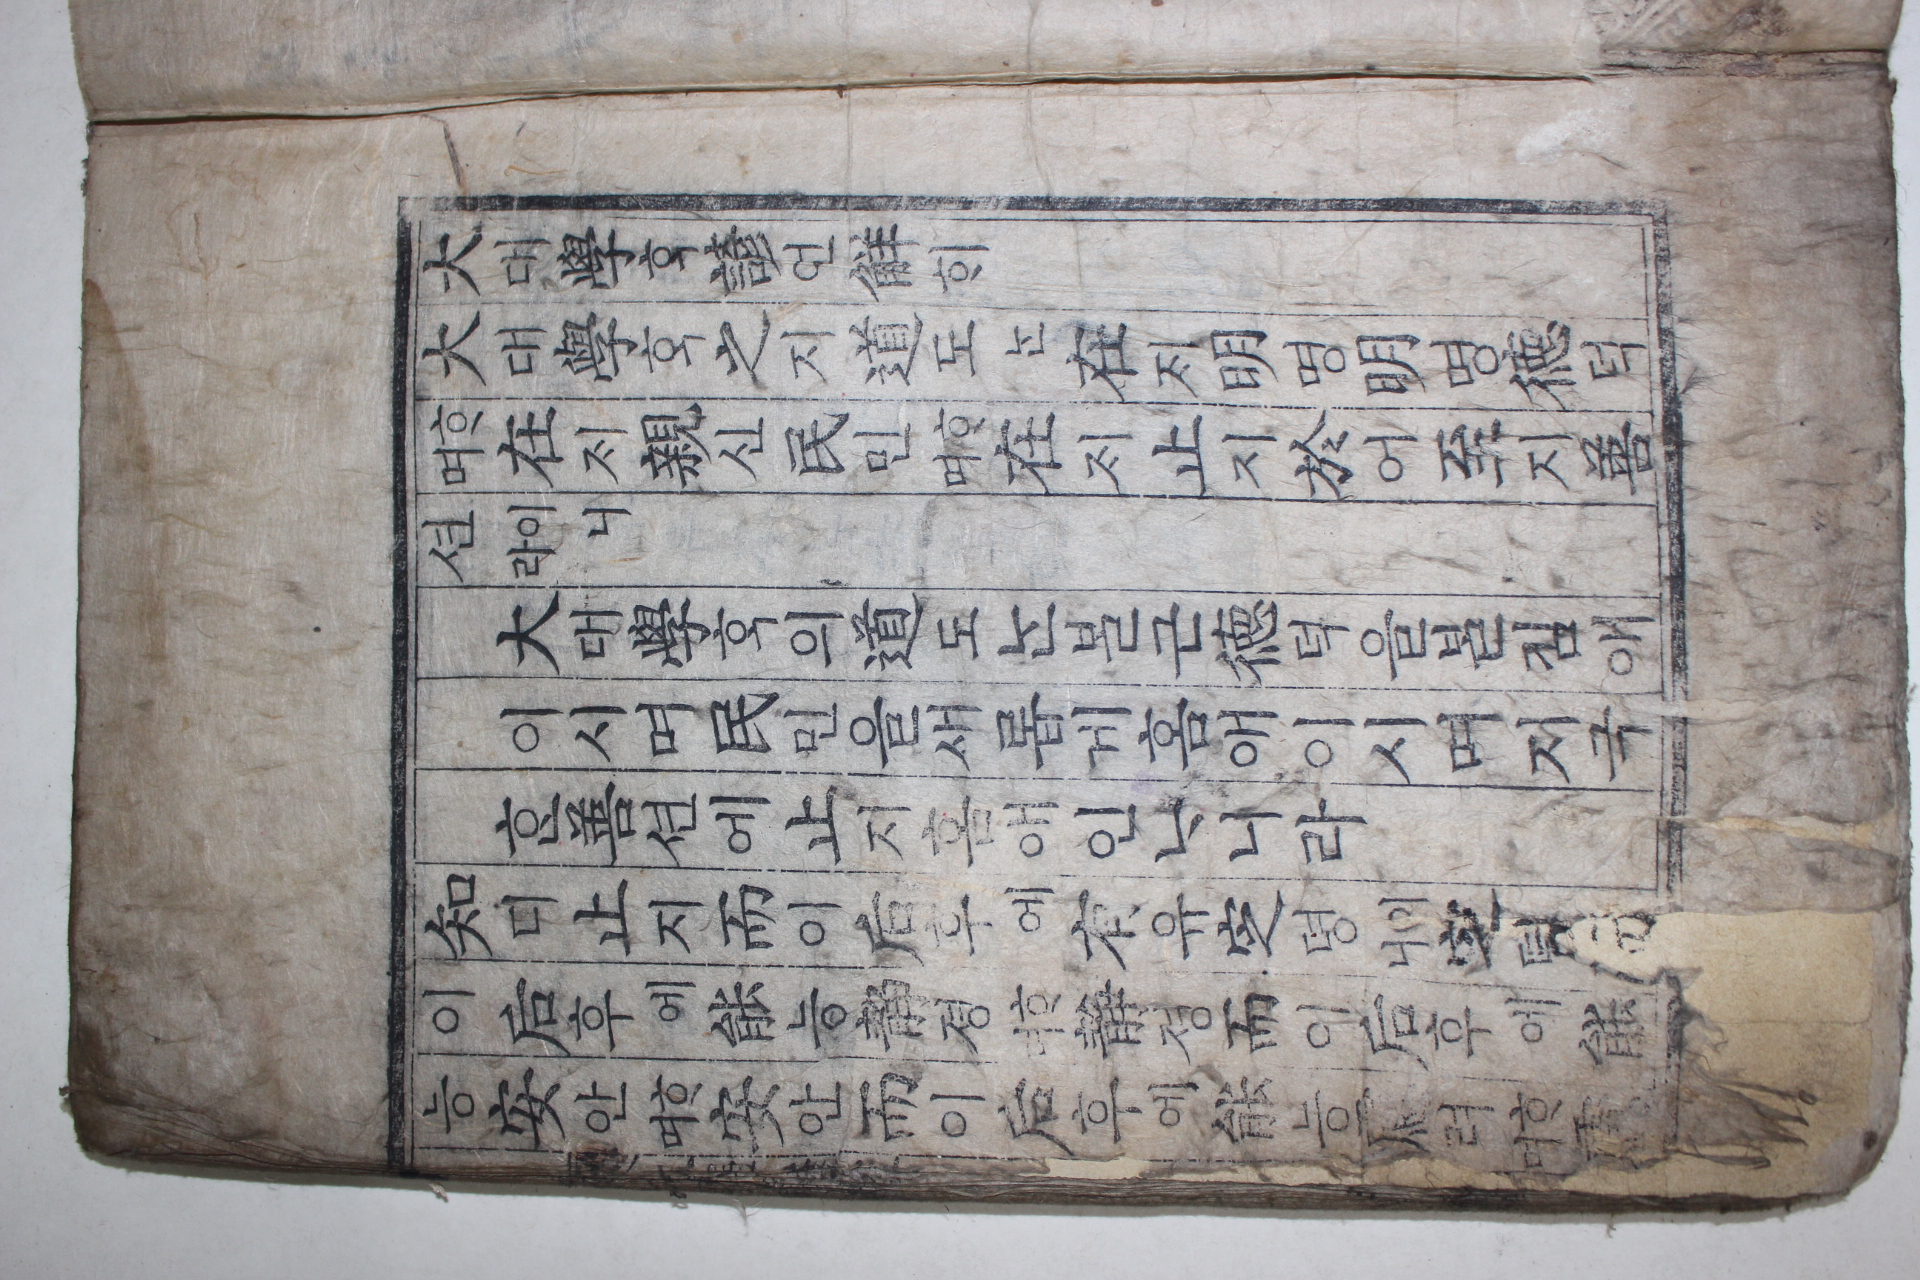 大대學ᄒᆞᆨ諺언解ᄒᆡ
大대學ᄒᆞᆨ之지道도ᄂᆞᆫ在ᄌᆡ明명明명德덕
ᄒᆞ며在ᄌᆡ親신民민ᄒᆞ며在ᄌᆡ止지於어至지善
션이니라
大대學ᄒᆞᆨ의道도ᄂᆞᆫᄇᆞᆯᄀᆞᆫ德덕을ᄇᆞᆯ킴애
이시며民민을새롭게홈애이시며지극
ᄒᆞᆫ善션에止지홈애인ᄂᆞ니라
知디止지而이后후에有유定뎡이니定뎡
이后후에能능靜졍ᄒᆞ며靜졍而이后후에能
능安안ᄒᆞ며安안而이后후에能능慮려ᄒᆞ며慮